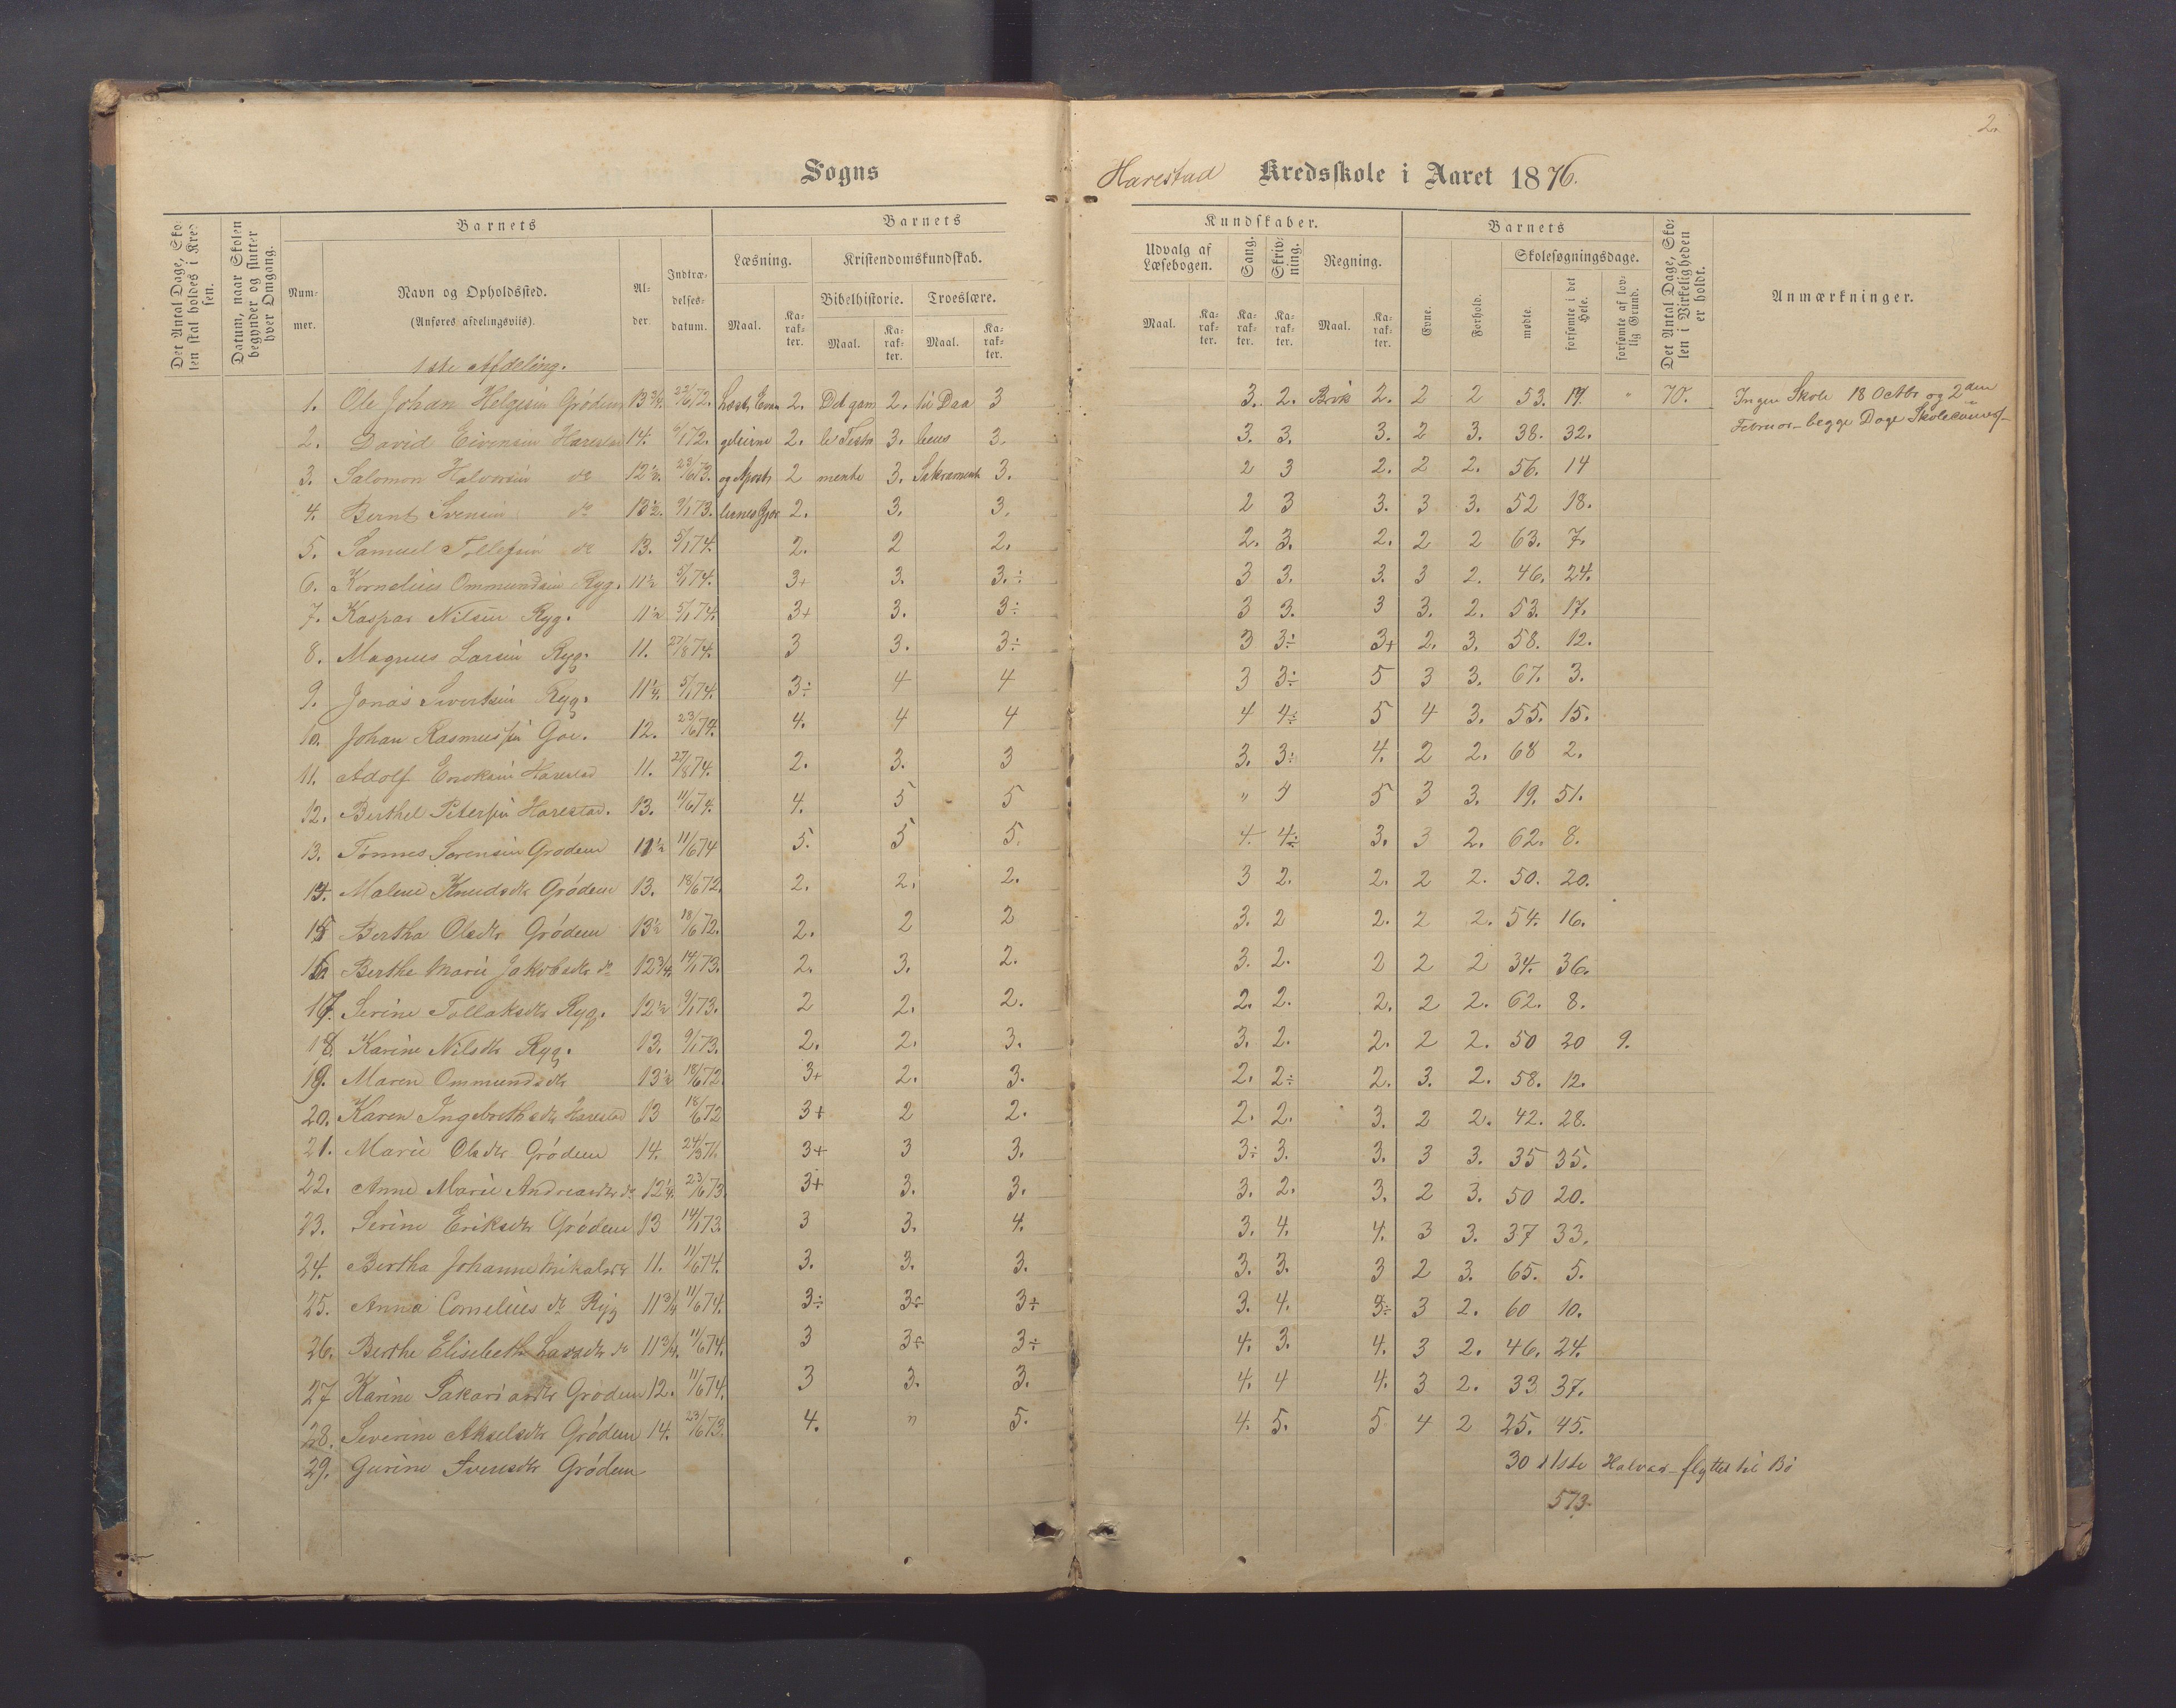 2.
Sogns
Harestad Kredsskole i Aaret 1876.
Det Antal Dage, Skolen skal holdes i Kredsen.
Datum, naar Skolen begynder og slutter hver Omgang.
Barnets
Nummer.
Navn og Opholdssted.
(Anføres afdelingsviis).
Alder.
Indtrædelsesdatum.
Barnets
Læsning.
Maal.
Karakter.
Kristendomskundskab.
Bibelhistorie.
Maal.
Karakter.
Troeslære.
Maal.
Karakter.
Kundskaber.
Udvalg af Læsebogen.
Maal.
Karakter.
Sang.
Karakter.
Skrivning.
Karakter.
Regning.
Maal.
Karakter.
Barnets
Evne.
Forhold.
Skolesøgningsdage.
mødte.
forsømte i det Hele.
forsømte af lovlig Grund.
Det Antal Dage, Skolen i Virkeligheden er holdt.
Anmærkninger.
1ste Afdeling.
1. Ole Johan Helgesen Grødem 13 3/4. 23/6 72. 2. Det gam 2. til Daa 3 3. 2. Brøk 2. 2 2 53. 17. " 70. Ingen Skole 18 Octbr og 2den
2. David Eivensen Harestad 14. 9/1 72. gelierne 2. le Testa 3. bens 3. 3. 3. 3. 2 3. 38. 32. Februar begge Dage
3. Salomon Halvorsen do 12 1/2. 23/6 73. og Apost 2 mente 3. Sakramente 3. 2 3 2. 2 2. 56. 14
4. Bernt Svensen do 13 1/2. 9/1 73. lernes Gjer 2. 3. 3. 2 3 3. 3 3. 52 18.
5. Samuel Tollefsen do 13. 5/1 74. 2. 2 2. 2. 3. 2. 2 2 63. 7.
6. Kornelius Ommundsen Ryg. 11 1/2 5/1 74. 3+ 3. 3.÷ 3 3. 3. 3 2. 46. 24.
7. Kaspar Nilsen Ryg. 11 1/2 5/1 74. 3+ 3. 3÷ 3 3. 3 3. 2. 53. 17.
8. Magnus Larsen Ryg. 11. 27/8 74. 3 3. 3÷ 3 3÷ 3+ 2. 3. 58. 12.
9. Jonas Sivertsen Ryg. 11 1/4. 5/1 74. 3÷ 4 4 3 3÷ 5 3 3. 67. 3.
10. Johan Rasmussen Goe. 12. 23/6 74. 4. 4 4 4 4÷ 5 4 3. 55. 15.
11. Adolf Enoksen Harestad 11. 27/8 74. 2. 3. 3 3. 3÷ 4. 2 2. 68 2.
12. Berthel Petersen Harestad. 13. 11/6 74. 4. 5 5 " 4 5 3 3. 19. 51.
13. Tønnes Sørensen Grødem 11 1/2 11/6 74 5. 5 5. 4. 4÷ 3. 3 2. 62. 8.
14. Malene Knudsdtr Grødem 13. 18/6 72. 2. 2. 2. 3 2. 2. 2 2. 50. 20.
15 Bertha Olsdtr Grødem 13 1/2 18/6 72. 2. 2 2 3. 2 2. 2 2. 54. 16.
16. Berthe Marie Jakobsdtr do 12 3/4. 14/1 73. 2. 3. 2. 3. 2. 2 2 2 34. 36.
17. Serine Tollaksdtr Ryg. 12 1/2 9/1 73. 2 2. 2. 2. 2. 2. 2 2. 62. 8.
18. Karine Nilsdtr Ryg. 13. 9/1 73. 2. 2. 3. 3. 2. 2. 2 2. 50 20 9.
19. Maren Ommundsdtr 13 1/2 18/6 72. 3+ 2. 3. 2. 2÷ 2. 3. 2. 58. 12.
20. Karen Ingebrethsdtr Harestad 13 18/6 72 3+ 2 2. 2. 2. 3. 2 2. 42. 28.
21. Marie Olsdtr Grødem 14. 24/3 71. 3+ 3 3. 3÷ 3. 3. 3 3. 35 35.
22. Anne Marie Andreasdtr do 12 1/4. 23/6 73. 3+ 3. 3. 3. 2. 3. 2 3. 50 20.
23. Serine Eriksdtr Grødem 13 14/1 73. 3 3. 4. 3. 4. 4. 3 3. 37 33.
24. Bertha Johanne Mikalsdtr 11. 11/6 74. 3. 3. 3. 3. 3. 3 2 3. 65. 5.
25. Anna Cornelius dtr Ryg 11 3/4 11/6 74. 3÷ 3÷ 3÷ 3. 4. 3÷ 3 2. 60 10.
26. Berthe Elisebeth Larsdtr do 11 3/4. 11/6 74. 3 3÷ 3÷ 4. 3. 4. 3 2. 46. 24.
27 Karine Sakariasdtr Grødem 12. 11/6 74. 3 3. 3. 4. 4 4. 3 2. 33 37.
28. Severine Akselsdtr Grødem 14. 23/6 73. 4. " 5. 4. 5. 5 4 2 25. 45.
29. Gurine Svensdtr Grødem 30 i 1ste Halvaar flyttet til Bø
573.